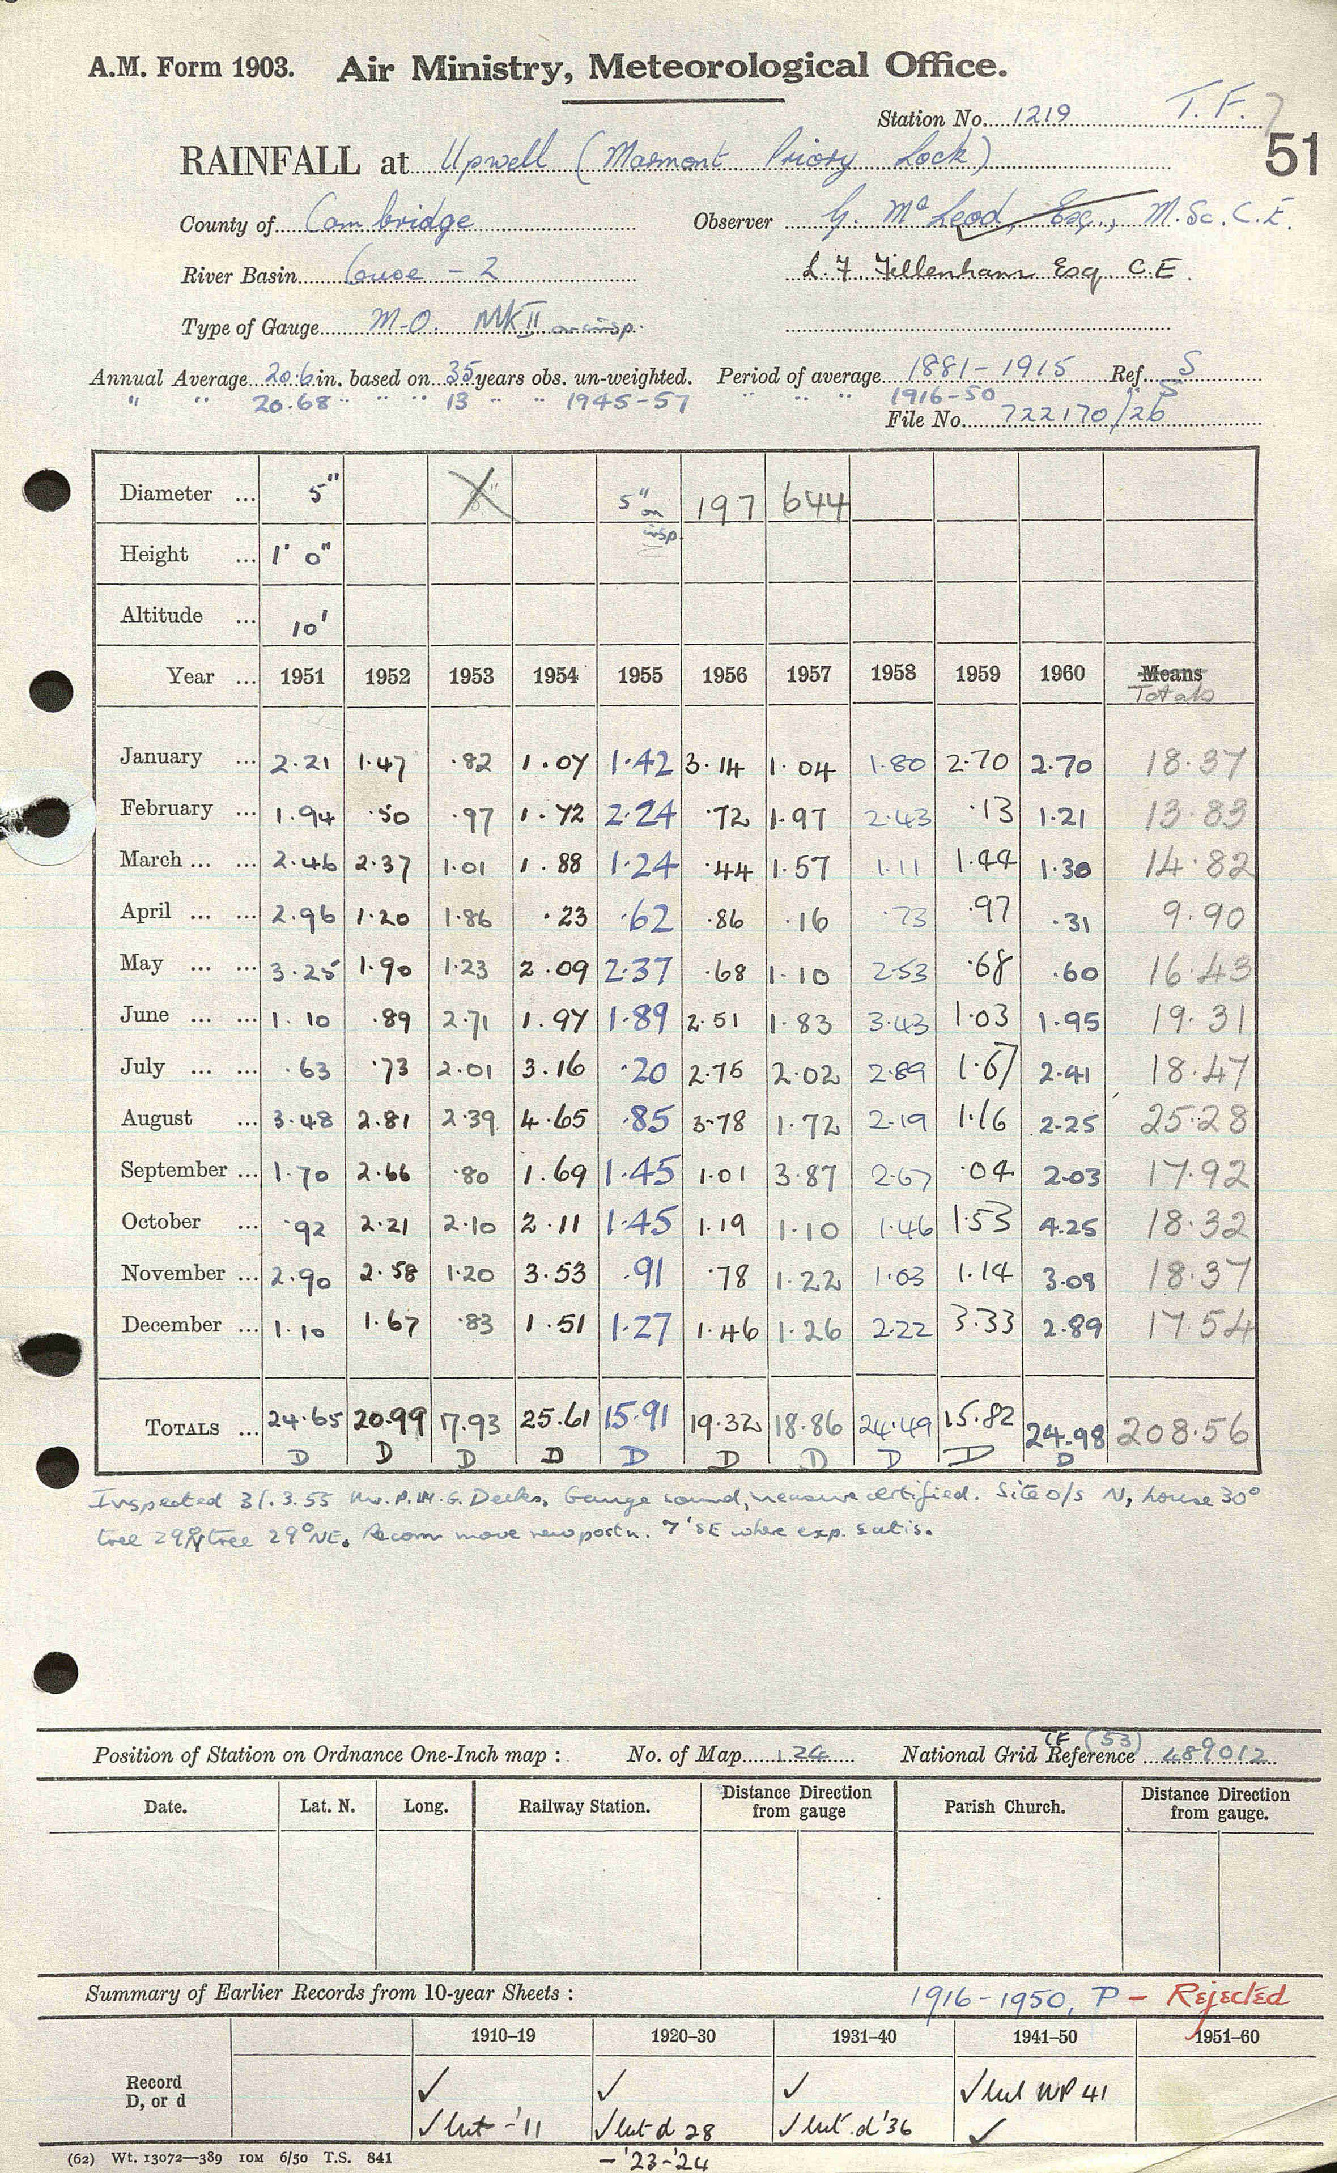 A.M. Form 1903. Air Ministry, Meteorological Office.
Station No. 1219 T.F. 7
51
RAINFALL at Upwell (Marmont Priory Lock)
County of Cambridge Observer G. McLeod, Esq., M.Sc. C.E.
River Basin Ouse - 2 L. F. Fillenham Esq C.E.
Type of Gauge M.O. MK II on insp.
Annual Average 20.6 in. based on 35 years obs. un-weighted. Period of average 1881-1915 Ref. S
" " 20.68 " " " 13 " " 1945-57 " " " 1916-50 S
File No. 722170/26
Diameter ... 5" 5" on insp. 197 644
Height ... 1' 0"
Altitude ... 10'
Year ... 1951 1952 1953 1954 1955 1956 1957 1958 1959 1960 Means Totals
January ... 2.21 1.47 .82 1.07 1.42 3.14 1.04 1.80 2.70 2.70 18.37
February ... 1.94 .50 .97 1.72 2.24 .72 1.97 2.43 .13 1.21 13.83
March ... ... 2.46 2.37 1.01 1.88 1.24 .44 1.57 1.11 1.44 1.30 14.82
April ... ... 2.96 1.20 1.86 .23 .62 .86 .16 .73 .97 .31 9.90
May ... ... 3.25 1.90 1.23 2.09 2.37 .68 1.10 2.53 .68 .60 16.43
June ... ... 1.10 .89 2.71 1.97 1.89 2.51 1.83 3.43 1.03 1.95 19.31
July ... ... .63 .73 2.01 3.16 .20 2.75 2.02 2.89 1.67 2.41 18.47
August ... 3.48 2.81 2.39 4.65 .85 3.78 1.72 2.19 1.16 2.25 25.28
September ... 1.70 2.66 .80 1.69 1.45 1.01 3.87 2.67 .04 2.03 17.92
October ... .92 2.21 2.10 2.11 1.45 1.19 1.10 1.46 1.53 4.25 18.32
November ... 2.90 2.58 1.20 3.53 .91 .78 1.22 1.03 1.14 3.09 18.37
December ... 1.10 1.67 .83 1.51 1.27 1.46 1.26 2.22 3.33 2.89 17.54
TOTALS ... 24.65 20.99 17.93 25.61 15.91 19.32 18.86 24.49 15.82 24.98 208.56
D D D D D D D D D D
Inspected 31.3.55 Mr. P.M.G. Decks. Gauge sound, measure certified. Site o/s N, house 30°
tree 29°N tree 29°NE. Recom move new postn. 7' SE where exp. satis.
Position of Station on Ordnance One-Inch map : No. of Map 124 National Grid Reference TF (53) 489012
Date. Lat. N. Long. Railway Station. Distance Direction from gauge Parish Church. Distance Direction from gauge.
Summary of Earlier Records from 10-year Sheets : 1916-1950, P - Rejected
1910-19 1920-30 1931-40 1941-50 1951-60
Record ✓ ✓ ✓ ✓ but WP 41
D, or d ✓ but -'11 ✓ but d 28 ✓ but d '36 ✓
(62) Wt. 13072—389 10M 6/50 T.S. 841 - '23-'24